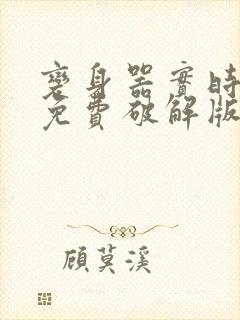 變身器實時
免費破解版
顾莫溪